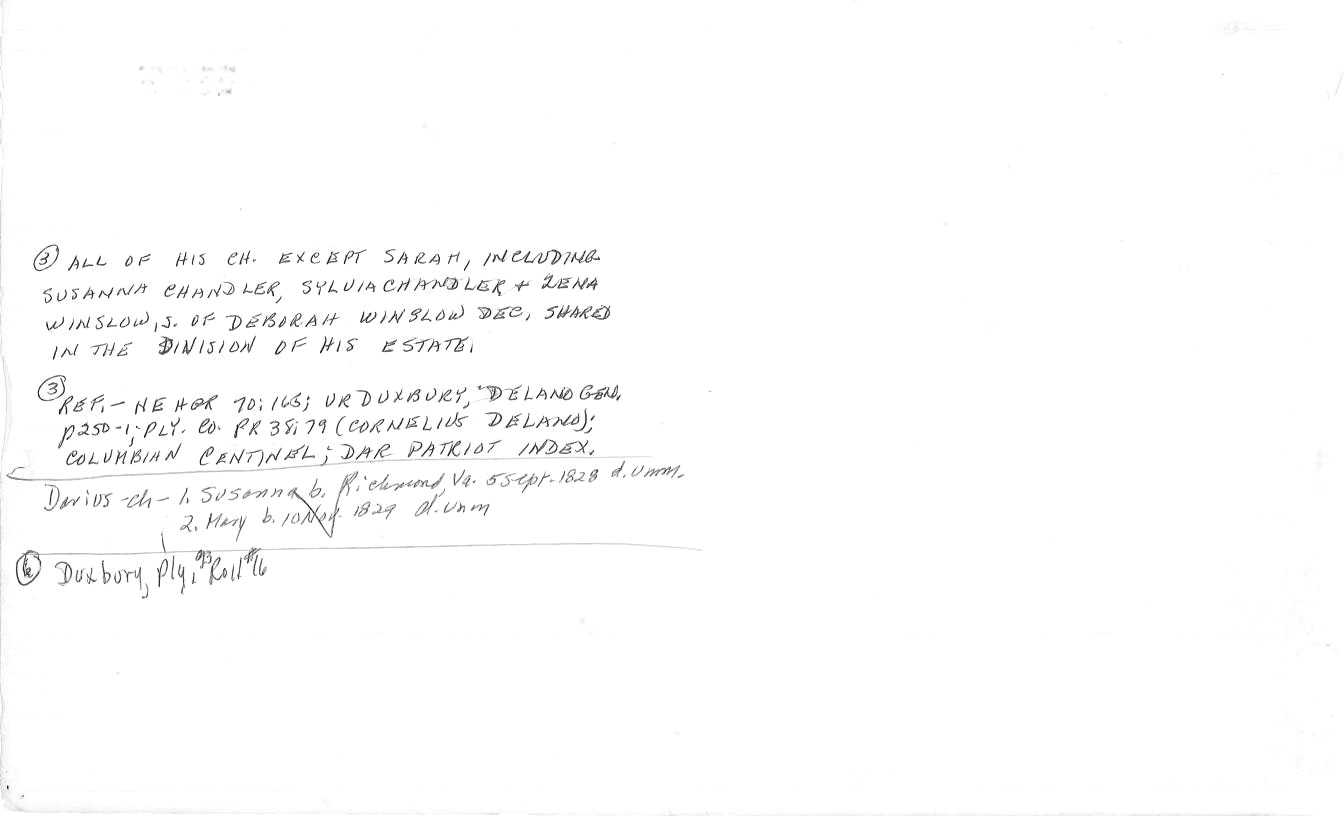 ③ ALL OF HIS CH. EXCEPT SARAH, INCLUDING
SUSANNA CHANDLER, SYLVIA CHANDLER + ZENA
WINSLOW, S. OF DEBORAH WINSLOW DEC, SHARED
IN THE DIVISION OF HIS ESTATE.
③
REF. - NEHGR 70:163; VR DUXBURY, "DELANO GEN.
p250-1; PLY. CO. PR 38:79 (CORNELIUS DELANO);
COLUMBIAN CENTINEL; DAR PATRIOT INDEX.
Darius - ch - 1. Susanna b. Richmond, Va. 5 Sept. 1828 d. unm.
2. Mary b. 10 Nov. 1829 d. unm
Duxbury, Ply, Roll #16